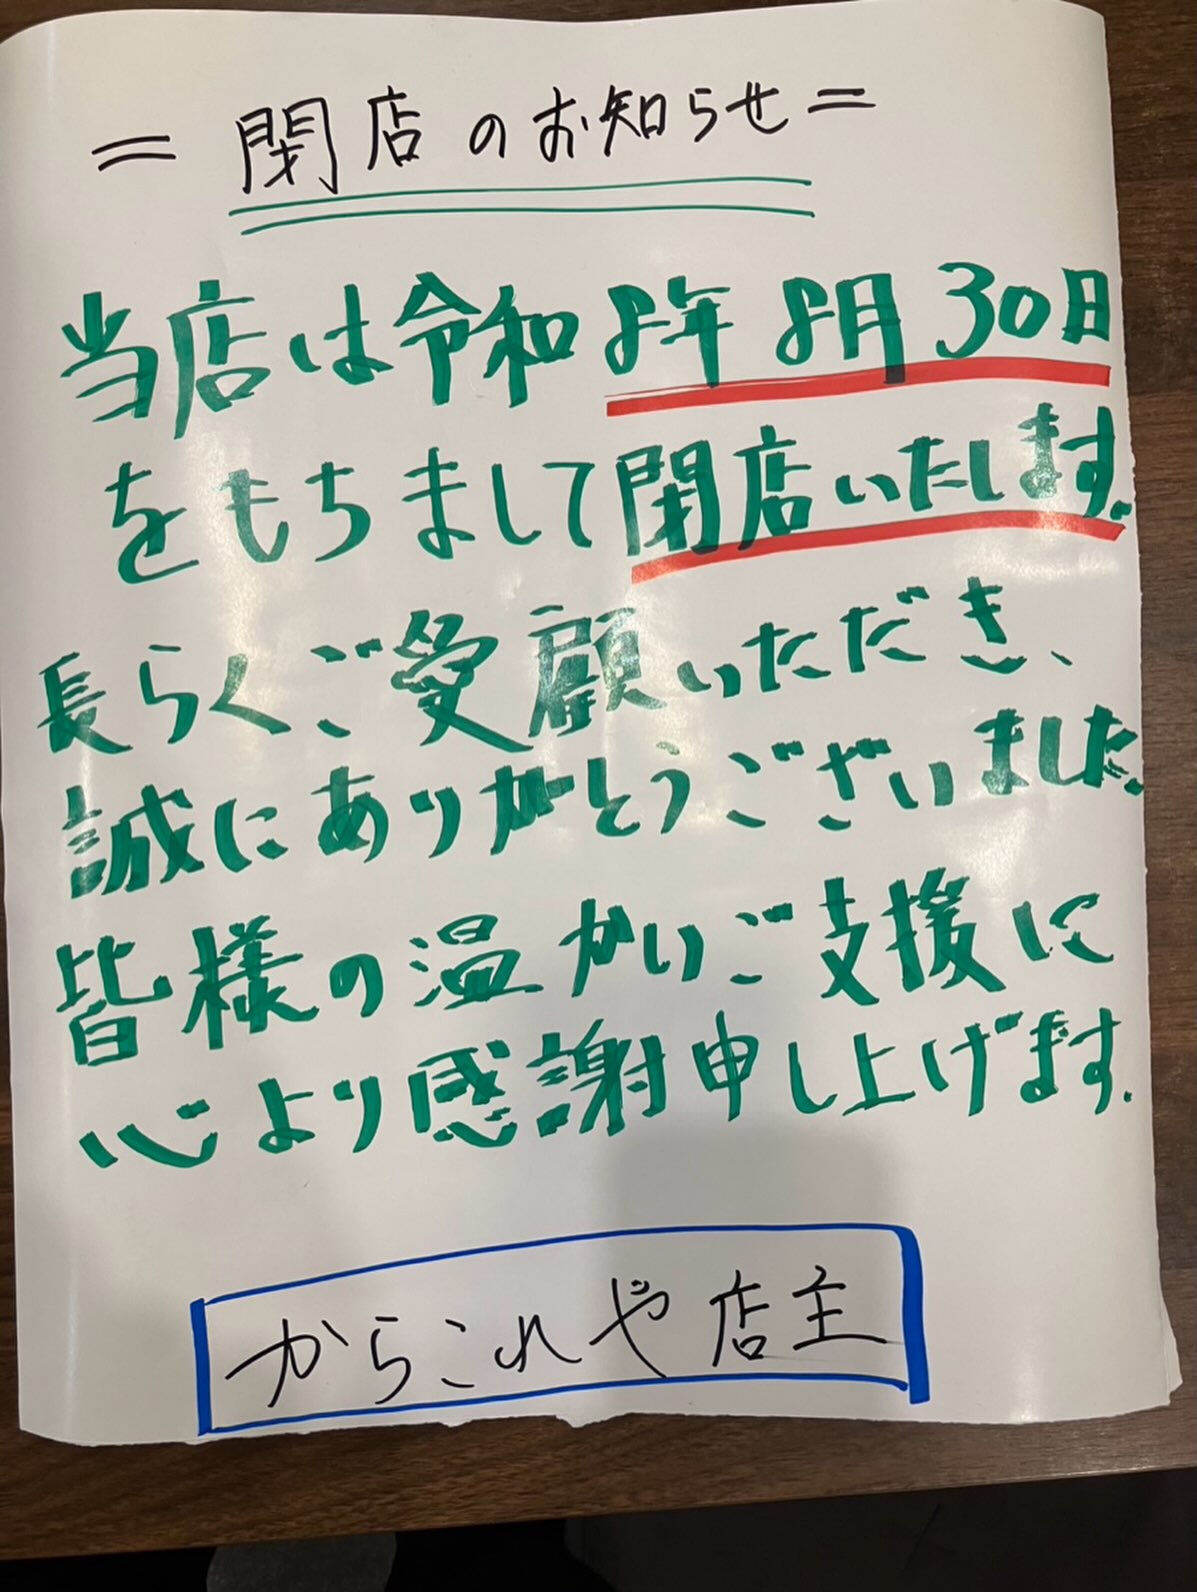 =閉店のお知らせ=
当店は令和8年8月30日
をもちまして閉店いたします.
長らくご愛顧いただき、
誠にありがとうございました.
皆様の温かいご支援に
心より感謝申し上げます.
からこれや店主